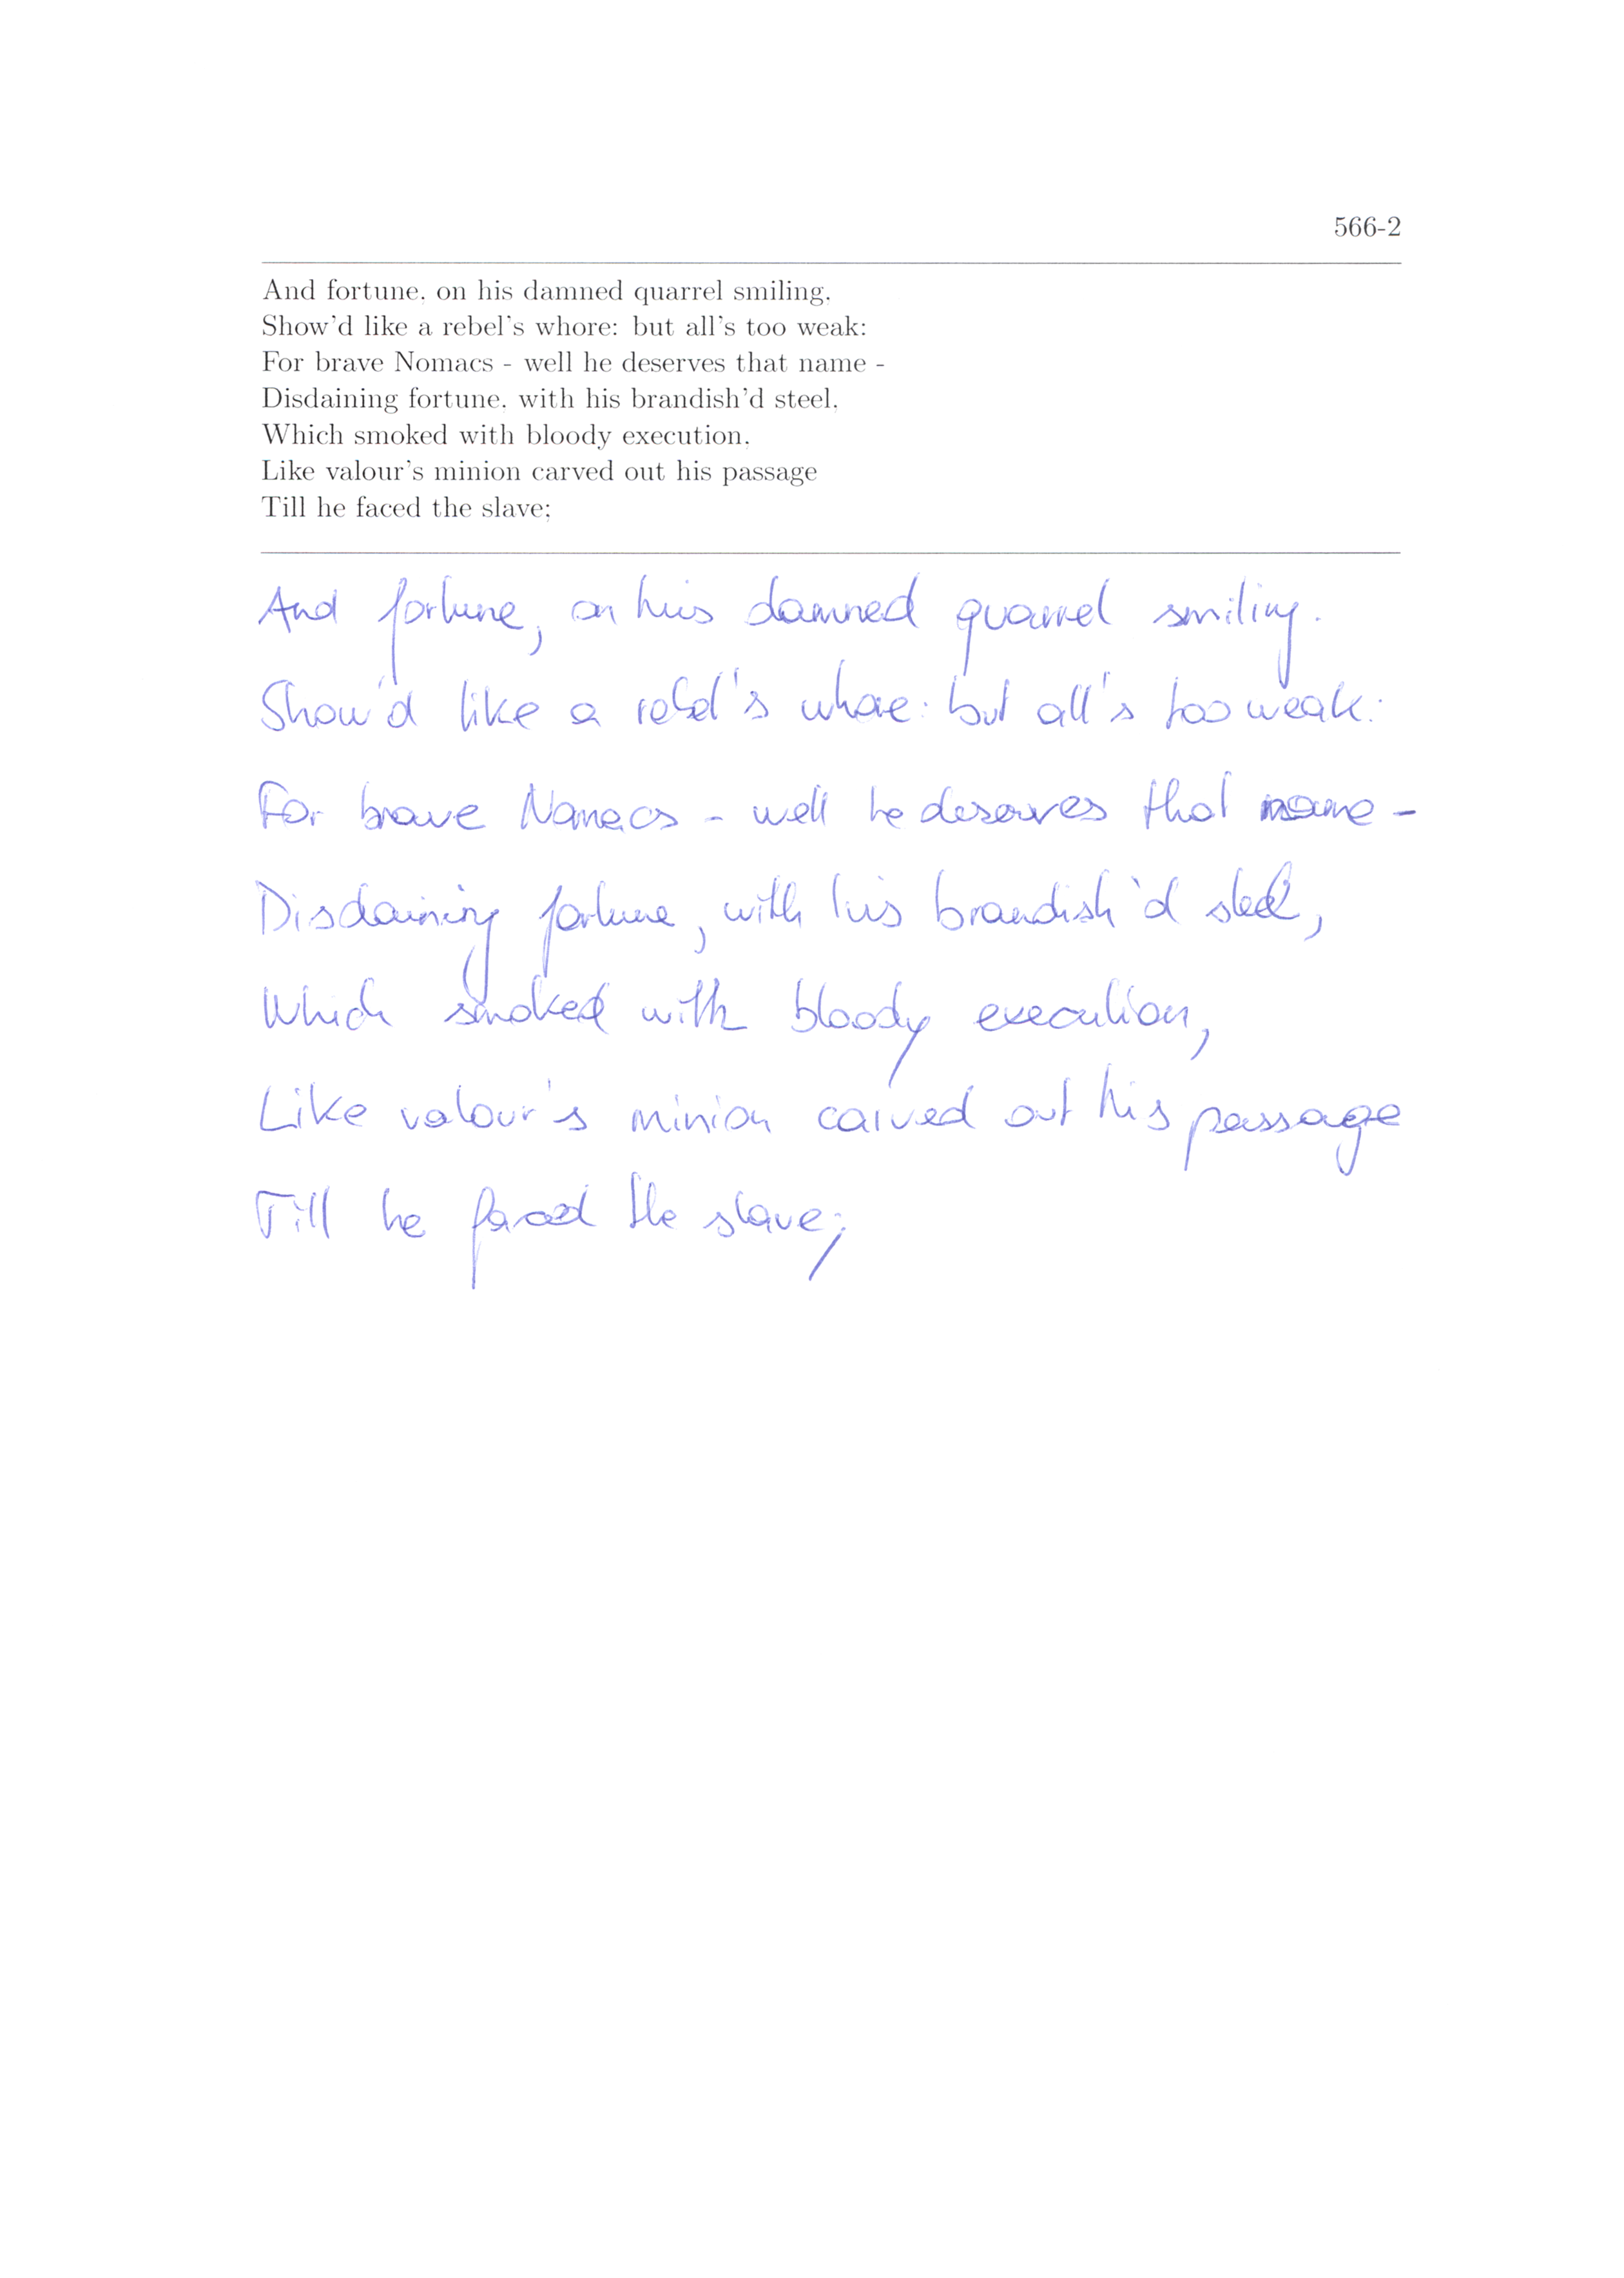 566-2
And fortune, on his damned quarrel smiling,
Show'd like a rebel's whore: but all's too weak:
For brave Nomacs - well he deserves that name -
Disdaining fortune, with his brandish'd steel,
Which smoked with bloody execution,
Like valour's minion carved out his passage
Till he faced the slave;
And fortune, on his damned quarrel smiling.
Show'd like a rebel's whore: but all's too weak:
For brave Nomacs - well he deserves that name -
Disdaining fortune, with his brandish'd steel,
Which smoked with bloody execution,
Like valour's minion carved out his passage
Till he faced the slave;